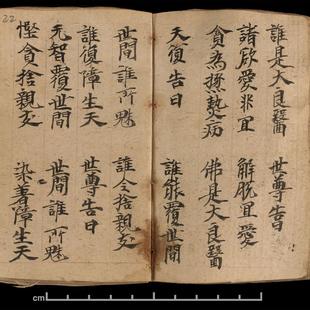 誰是大良醫　世尊告曰
諸欲愛非宜　解脫宜愛
貪為極熱病　佛是大良醫
天復告曰　誰能覆世間
世間誰所魅　誰令捨親友
誰復障生天　世尊告曰
无智覆世間　世間誰所魅
慳貪捨親友　染著障生天
22
cm